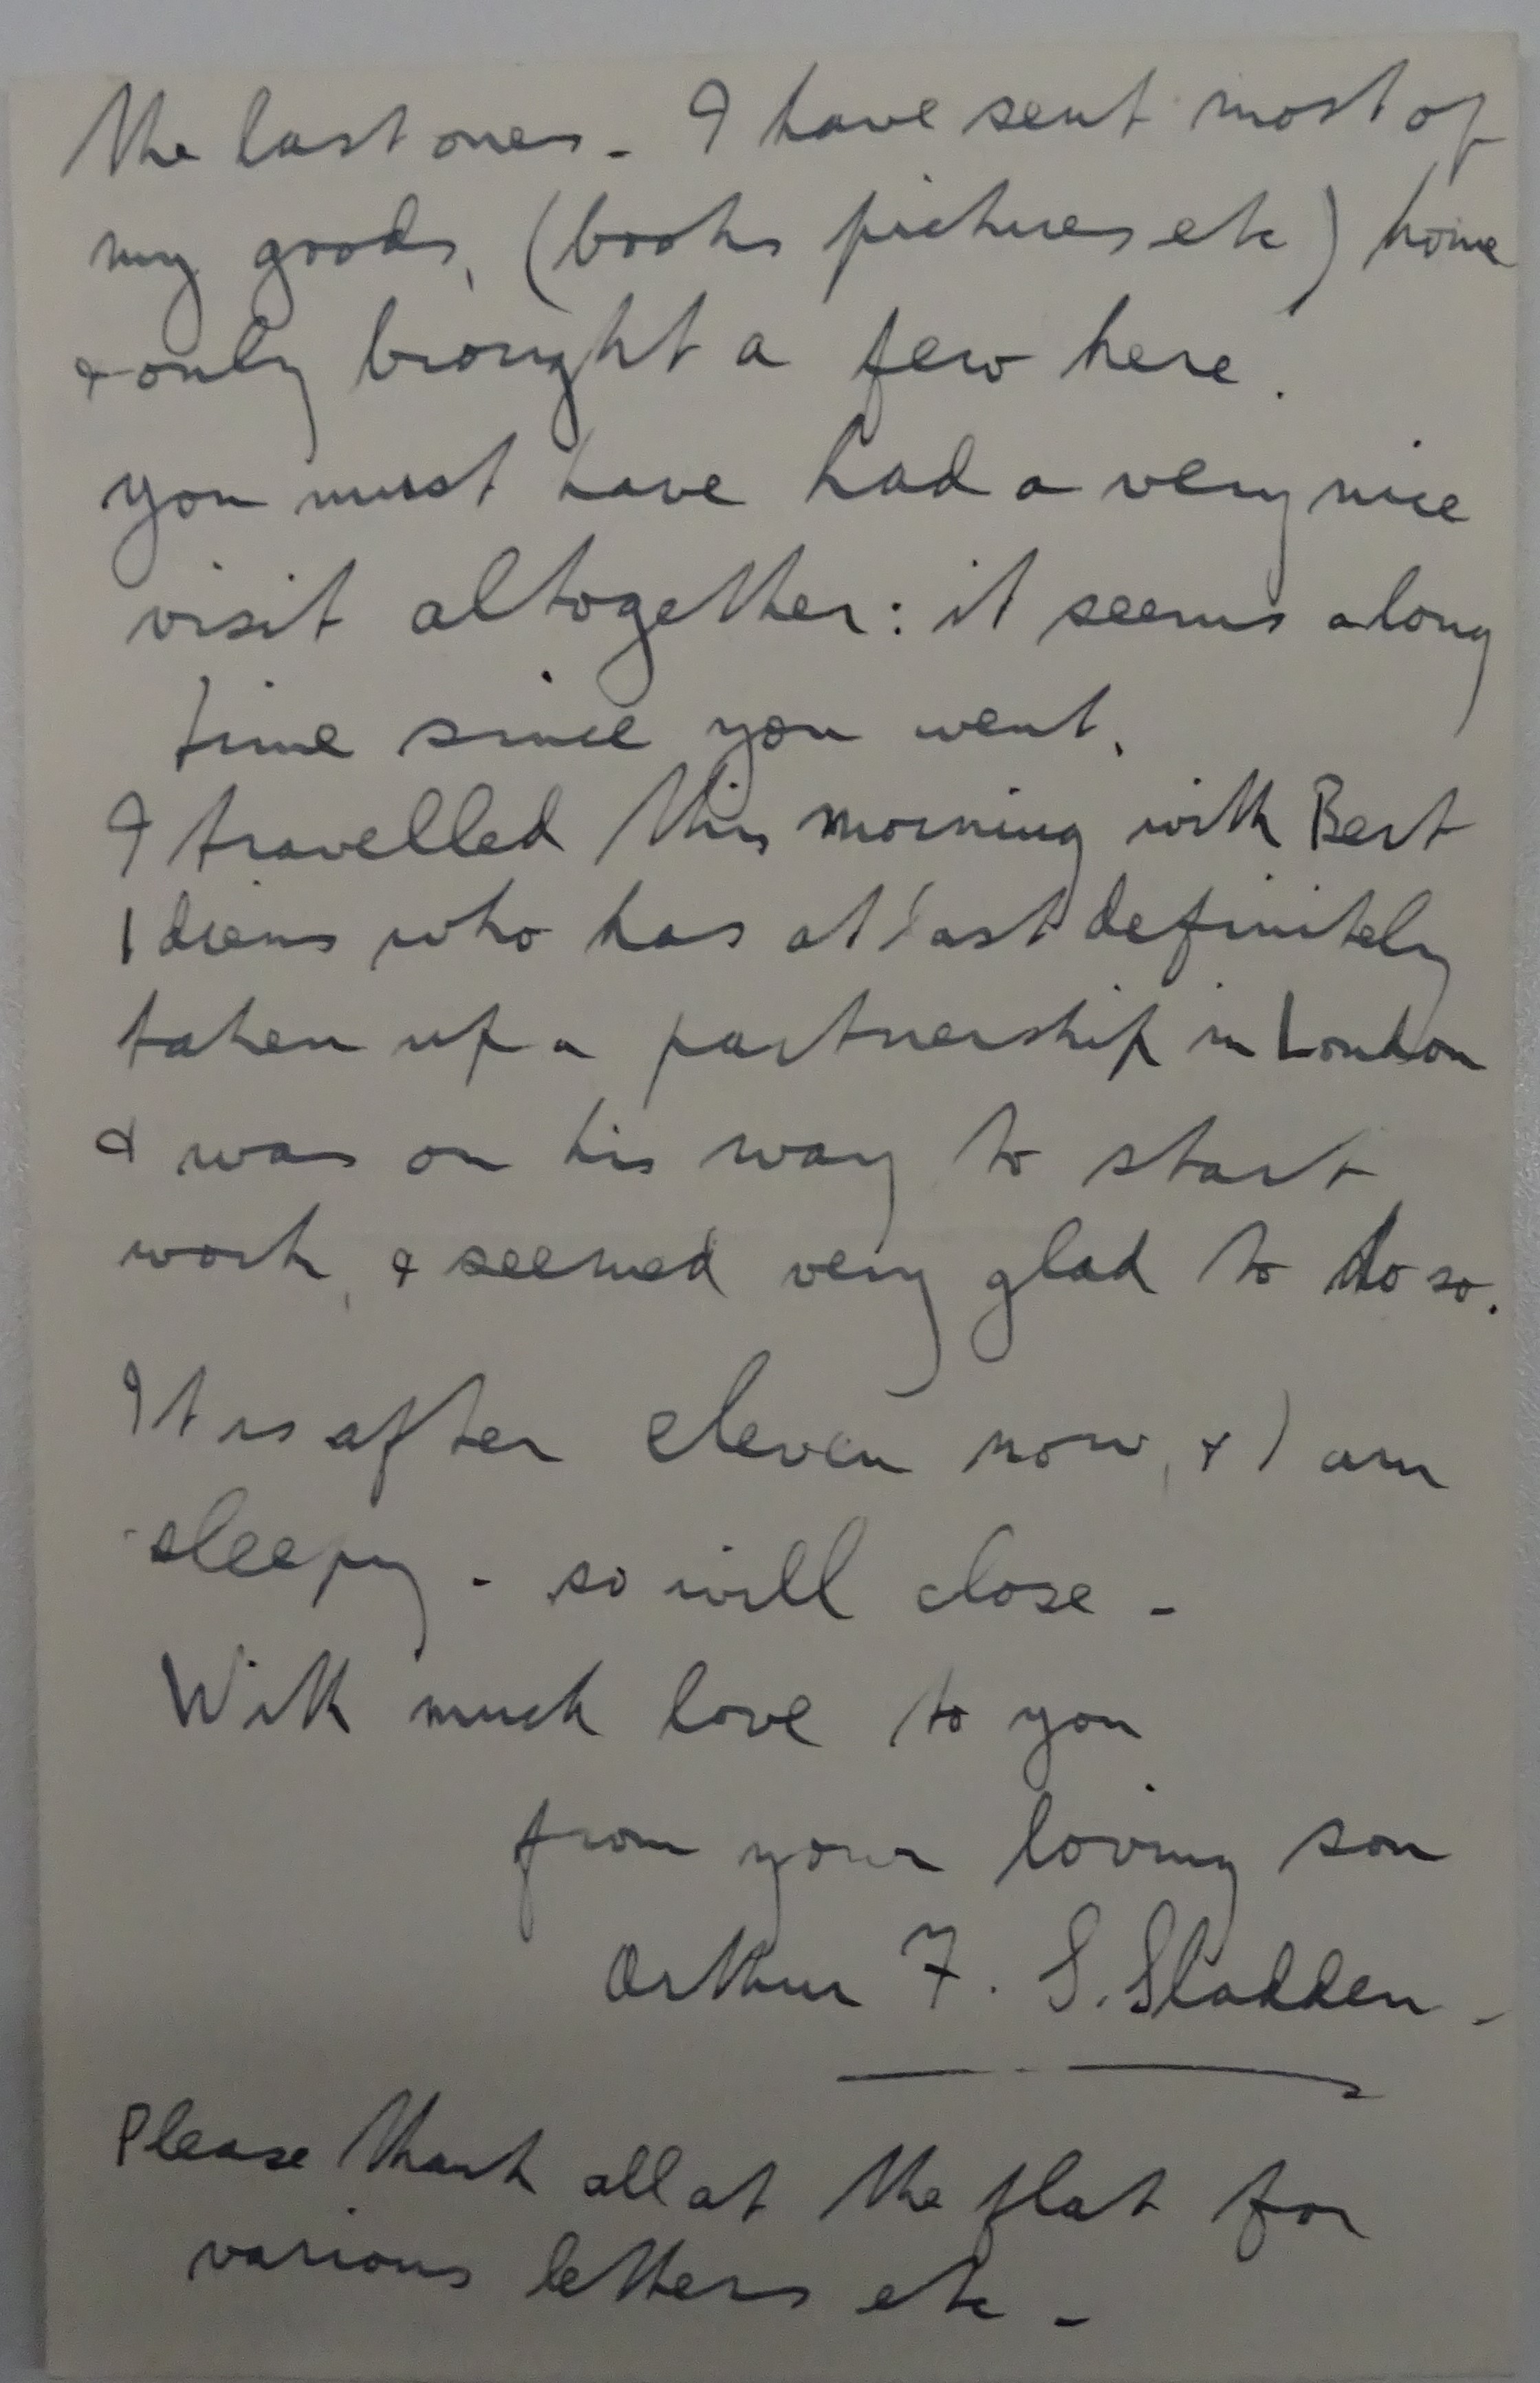 the last ones - I have sent most of
my goods, (books pictures etc) home
& only brought a few here.
you must have had a very nice
visit altogether: it seems a long
time since you went.
I travelled this morning with Bert
Idiens who has at last definitely
taken up a partnership in London
& was on his way to start
work, & seemed very glad to do so.
It is after eleven now, & I am
sleepy - so will close -
With much love to you
from your loving son
Arthur F. S. Sladden -
Please thank all at the flat for
various letters etc -